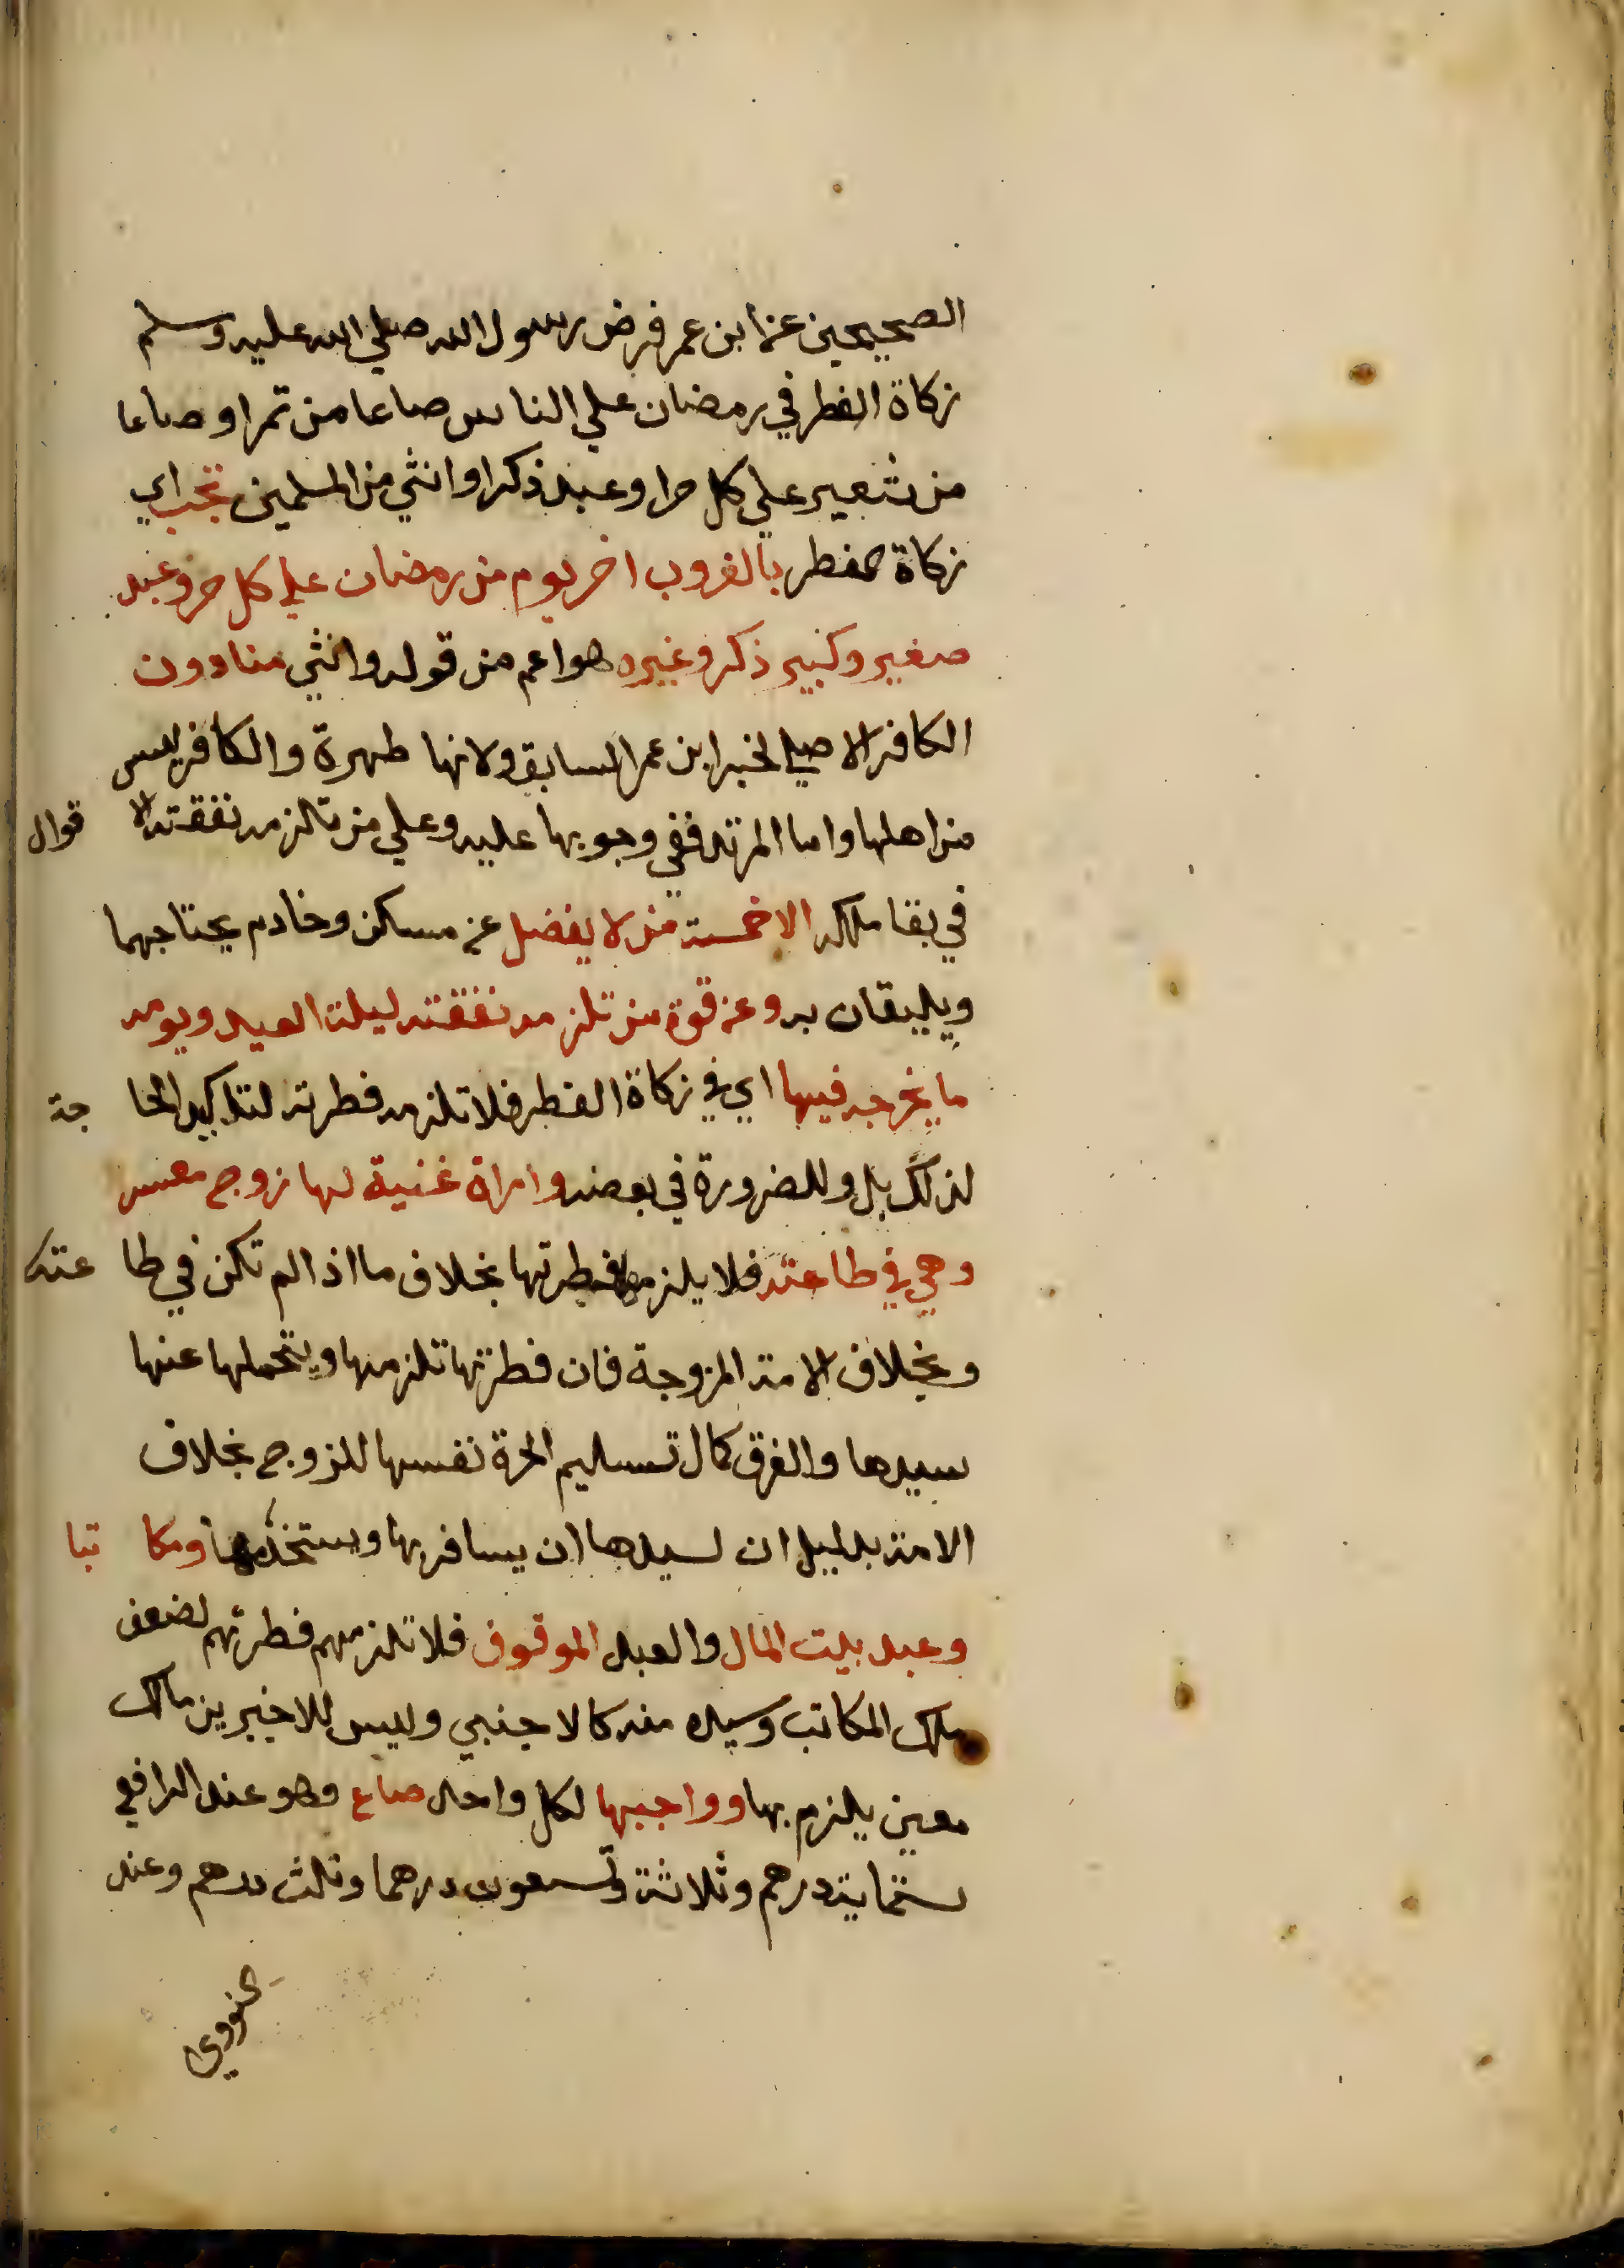 الصحيحين عن ابن عمر فرض رسول الله صلي الله عليه وسلم
زكاة الفطر في رمضان علي الناس صاعا من تمر او صاعا
من شعير علي كل حر او عبد ذكر او انثي من المسلمين تجب اي
زكاة الفطر بالغروب اخر يوم من رمضان علي كل حر وعبد
صغير وكبير ذكر وغيره هو اعم من قوله وانثي منا دون
الكافر الاصلي لخبر ابن عمر السابق ولانها طهرة والكافر ليس
من اهلها واما المرتد ففي وجوبها عليه وعلي من تلزمه نفقته الاقوال
في بقا ملكه الا خمسة من لا يفضل عن مسكن وخادم يحتاجهما
ويليقان به وعن قوة من تلزمه نفقته ليلة العيد ويومه
ما يخرجه فيها اي في زكاة الفطر فلا تلزمه فطرته لتاكيد الحاجة
لذلك بل وللضرورة في بعضه وامراة غنية لها زوج معسر
وهي في طاعته فلا يلزمها فطرتها بخلاف ما اذا لم تكن في طاعته
وبخلاف الامة المزوجة فان فطرتها تلزمها ويتحملها عنها
سيدها والفرق كمال تسليم الحرة نفسها للزوج بخلاف
الامة بدليل ان لسيدها ان يسافر بها ويستخدمها ومكاتبا
وعبد بيت المال والعبد الموقوف فلا تلزمهم فطرتهم لضعف
ملك المكاتب وسيده منه كالاجنبي وليس للاخيرين مالك
معين يلزم بها وواجبها لكل واحد صاع وهو عند الرافعي
ستماية درهم وثلاثة وتسعون درهما وثلث درهم وعند
النووي